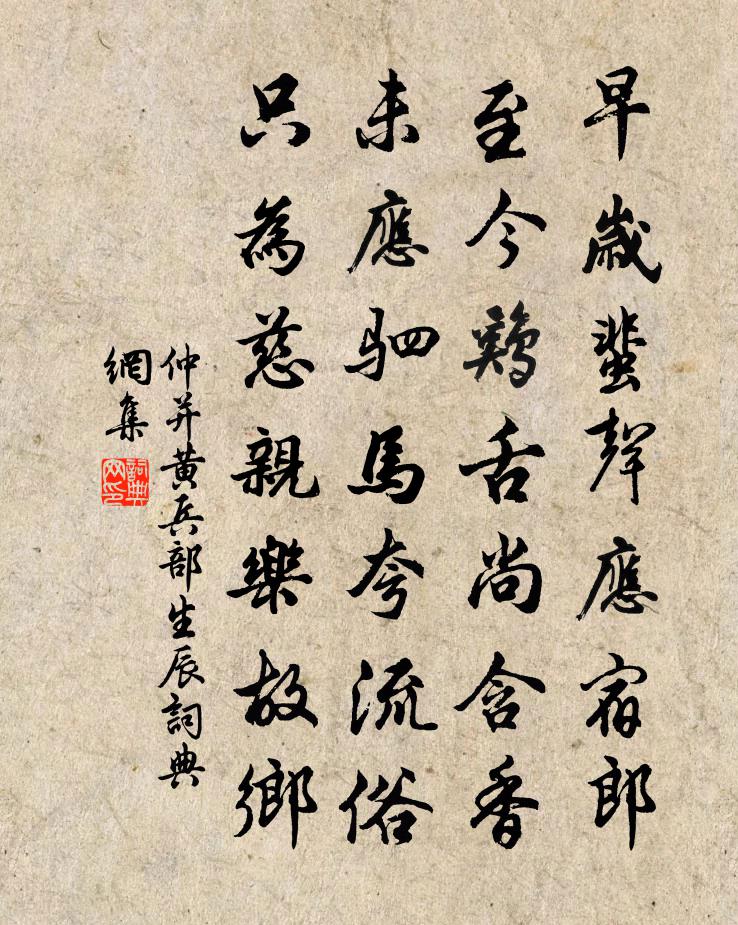 早歲蜚聲應宿郎
至今鷄舌尚含香
未應駟馬夸流俗
只為慈親樂故鄉
仲并黄兵部生辰詞典
網集
詞典網印